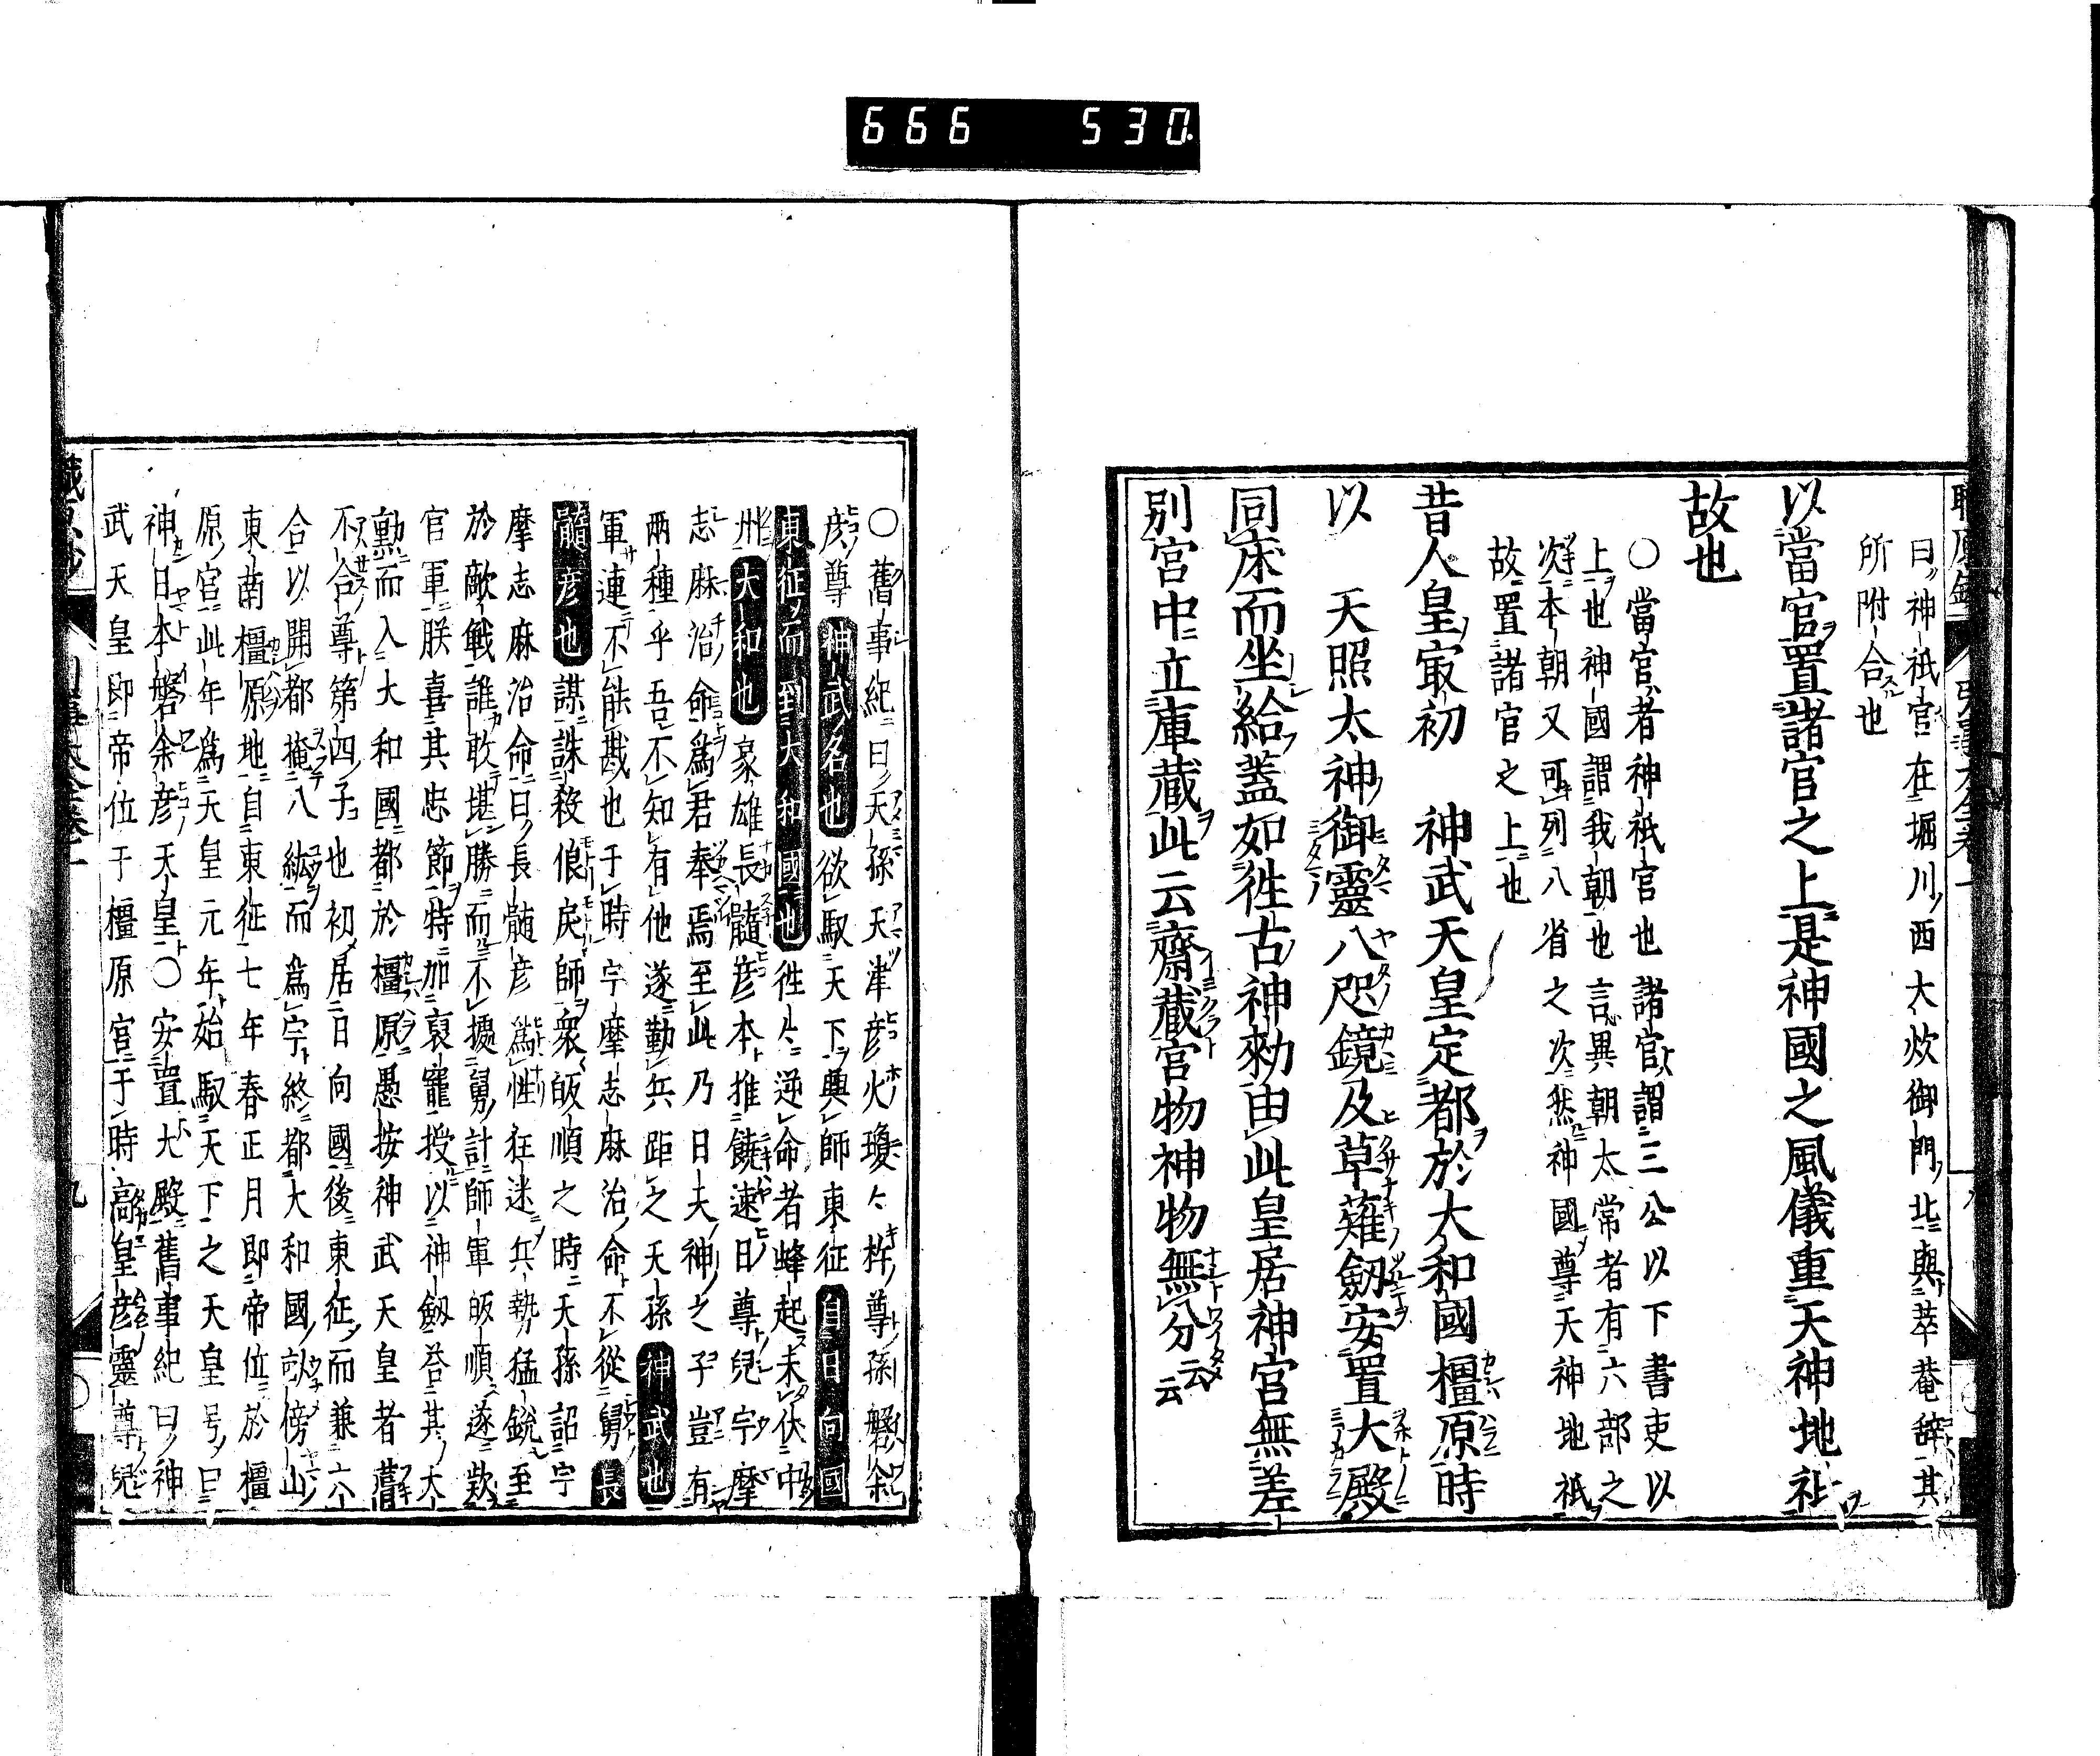 666 530
曰神祇官在堀川西大炊御門北與萃菴辭其
所附合也
以當官置諸官之上是神國之風儀重天神地祇
故也
○當官者神祇官也諸官謂三公以下書吏以
上也神國謂我朝也言異朝太常者有六部之
次本朝又可列八省之次然神國尊天神地祇
故置諸官之上也
昔人皇冣初 神武天皇定都於大和國橿原時
以 天照太神御靈八咫鏡及草薙劔安置大殿
同床而坐給蓋如徃古神勑由此皇居神宮無差
別宮中立庫蔵此云齋蔵官物神物無分云云
○舊事紀曰天孫天津彦火瓊々杵尊孫磐余
彦尊神武名也欲馭天下興師東征自日向國
東征而到大和國也徃々逆命者蜂起未伏中
州大和也豪雄長髄彦本推饒速日尊兒宇摩
志麻治命爲君奉焉至此乃曰夫神之子豈有
兩種乎吾不知有他遂勤兵距之天孫神武也
軍連不能戡也于時宇摩志麻治命不從舅長
髓彦也謀誅殺佷戻師衆皈順之時天孫詔宇
摩志麻治命曰長髄彦爲性狂迷兵執猛鋭至
於敵戦誰敢堪勝而不據舅計師軍皈順遂欵
官軍朕喜其忠節特加裒寵授以神劔荅其大
勲而入大和國都於橿原愚按神武天皇者葺
不合尊第四子也初居日向國後東征而兼六
合以開都掩八紘而爲宇終都大和國畝傍山
東南橿原地自東征七年春正月即帝位於橿
原宮此年爲天皇元年始馭天下之天皇号曰
神日本磐余彦天皇○安置大殿舊事紀曰神
武天皇即帝位于橿原宮于時高皇彦靈尊兒